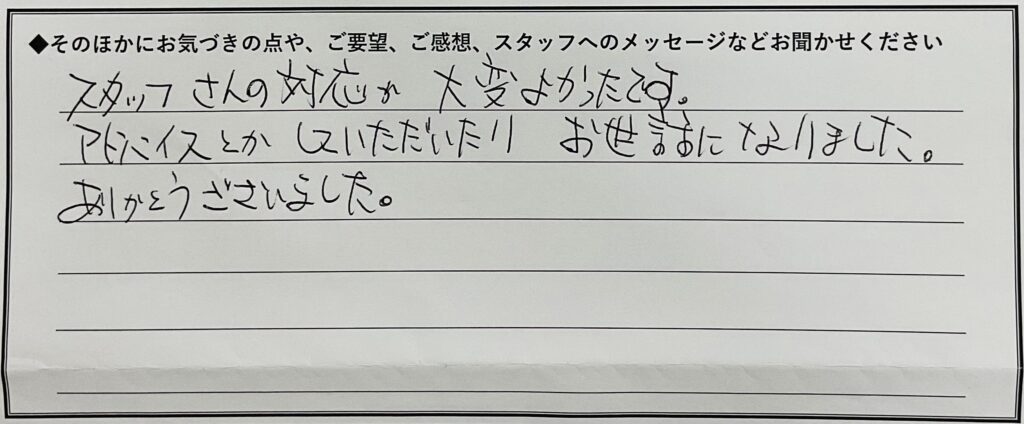 ◆そのほかにお気づきの点や、ご要望、ご感想、スタッフへのメッセージなどお聞かせください
スタッフさんの対応が 大変よかったです。
アドバイスとか していただいたり お世話になりました。
ありがとうございました。